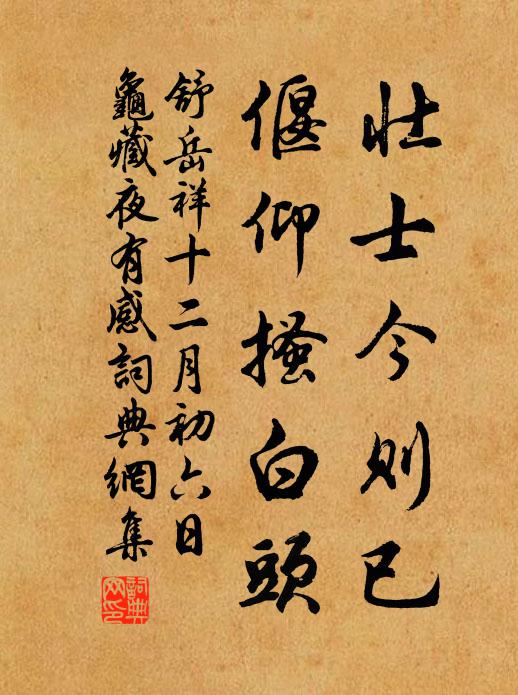 壮士今则已
偃仰搔白頭
舒岳祥十二月初六日
龜藏夜有感詞典網集
詞典网印